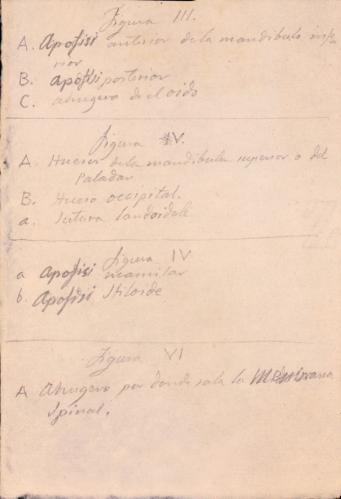 Figura III.
A. Apofisi anterior de la mandibula infe
rior
B. apofisi posterior
C. abugero de el oido
Figura IV.
A. Huesos de la mandibula superior o del
Paladar
B. Hueso occipital.
a. Sutura landoidele
Figura IV
a Apofisi mamilar
b. Apofisi Stiloide
Figura VI
A Abugero por donde sale la
Spinal.